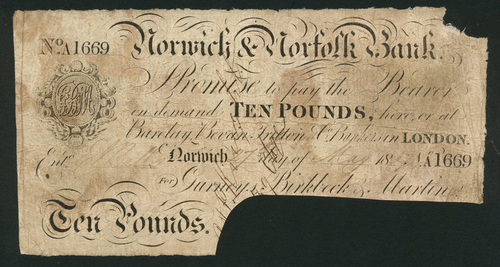 No. A1669 Norwich & Norfolk Bank.
I Promise to pay the Bearer
on demand TEN POUNDS, here, or at
Barclay, Bevan, Tritton & Co. Bankers in LONDON.
Ent. Norwich day of May 18 A1669
For Gurneys, Birkbeck & Martin
Ten Pounds.